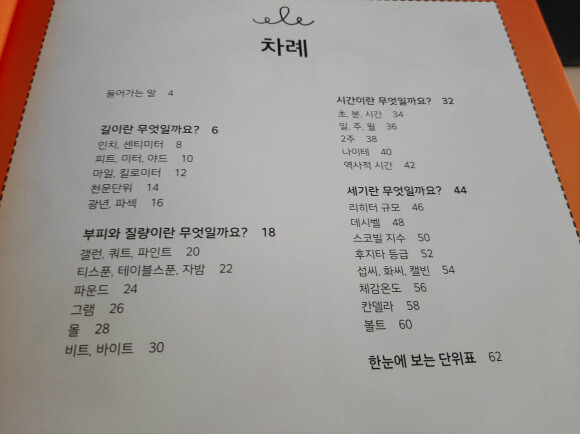 차례
들어가는 말 4
길이란 무엇일까요? 6
인치, 센티미터 8
피트, 미터, 야드 10
마일, 킬로미터 12
천문단위 14
광년, 파섹 16
부피와 질량이란 무엇일까요? 18
갤런, 쿼트, 파인트 20
티스푼, 테이블스푼, 자밤 22
파운드 24
그램 26
몰 28
비트, 바이트 30
시간이란 무엇일까요? 32
초, 분, 시간 34
일, 주, 월 36
2주 38
나이테 40
역사적 시간 42
세기란 무엇일까요? 44
리히터 규모 46
데시벨 48
스코빌 지수 50
후지타 등급 52
섭씨, 화씨, 캘빈 54
체감온도 56
칸델라 58
볼트 60
한눈에 보는 단위표 62